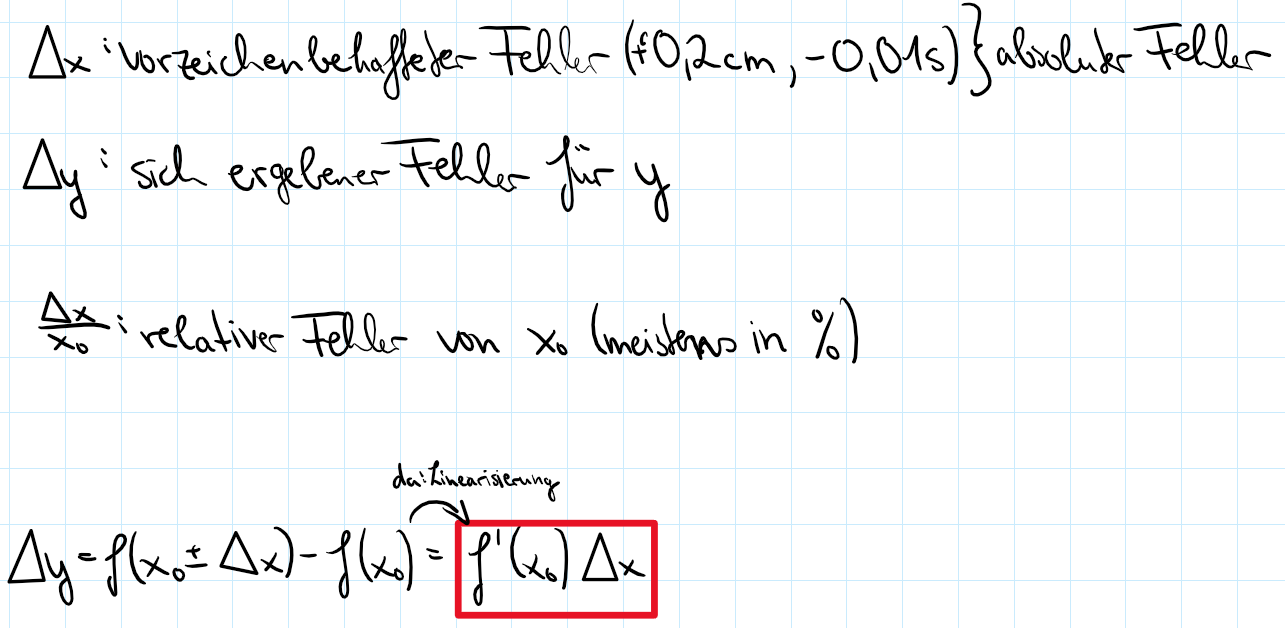 Δx : vorzeichenbehafteter Fehler (+0,2cm, -0,01s) } absoluter Fehler
Δy : sich ergebener Fehler für y
Δx/x₀ : relativer Fehler von x₀ (meistens in %)
da: Linearisierung
Δy = f(x₀ ± Δx) - f(x₀) = f'(x₀) Δx